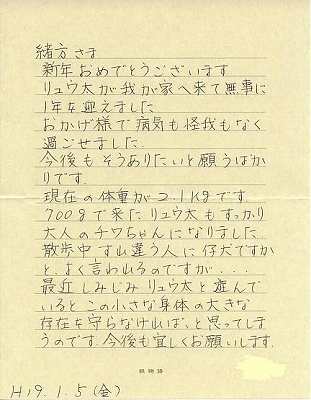 緒方さま
新年おめでとうございます
リュウ太が我が家へ来て無事に
1年を迎えました
おかげ様で病気も怪我もなく
過ごせました.
今後もそうありたいと願うばか
りです.
現在の体重が2.1kgです.
700gで来たリュウ太もすっかり
大人のチワちゃんになりました
散歩中すれ違う人に仔犬ですか
と、よく言われるのですが...
最近しみじみリュウ太と遊んで
いるとこの小さな身体の大きな
存在を守らなければ、と思ってしま
うのです.今後も宜しくお願いします.
H19.1.5(金)